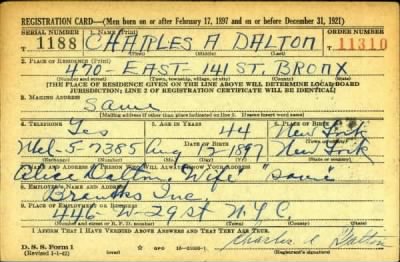 REGISTRATION CARD—(Men born on or after February 17, 1897 and on or before December 31, 1921)
SERIAL NUMBER 1. NAME (Print) ORDER NUMBER
1188 CHARLES A DALTON 11310
2. PLACE OF RESIDENCE (Print)
470 EAST 141 ST. BRONX
(Number and street) (Town, township, village, or city) (County) (State)
[THE PLACE OF RESIDENCE GIVEN ON THE LINE ABOVE WILL DETERMINE LOCAL BOARD
JURISDICTION; LINE 2 OF REGISTRATION CERTIFICATE WILL BE IDENTICAL]
3. MAILING ADDRESS
Same
[Mailing address if other than place indicated on line 2. If same insert word same]
4. TELEPHONE 5. AGE IN YEARS 6. PLACE OF BIRTH
Yes 44 New York
DATE OF BIRTH
Mel-5-7385 Aug 12 1897 New York
Alice Dalton, Wife "same"
8. EMPLOYER'S NAME AND ADDRESS
Inc.
9. PLACE OF EMPLOYMENT OR BUSINESS
446 W-29 st N.Y.C.
(Number and street or R. F. D. number) (Town) (County) (State)
I AFFIRM THAT I HAVE VERIFIED ABOVE ANSWERS AND THAT THEY ARE TRUE.
D. S. S. Form 1
(Revised 1-1-42) (over) GPO
Charles A Dalton